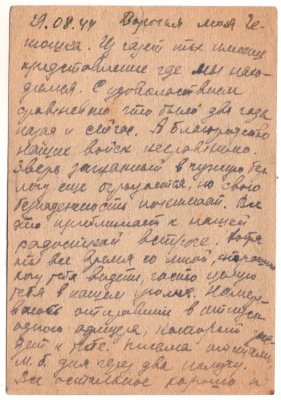 29.08.44 Дорогая моя Ге-
ночка. Из газет ты имеешь
представление где мы нахо-
димся. С удовольствием
сравниваю что было два года
назад и сейчас. А благородство
наших войск несравнимо.
Зверь загнанный в чужую бер-
логу еще огрызается, но свою
безнадежность понимает. Все
это приближает к нашей
радостной встрече. Хотя
ты все время со мной,
хочу тебя видеть, часто целую
тебя в нашем уголке. Намер-
ваюсь отправить в отпуск
одного офицера, который зае-
дет к тебе. Письма
м.б. дня через два получу.
Все остальное хорошо и